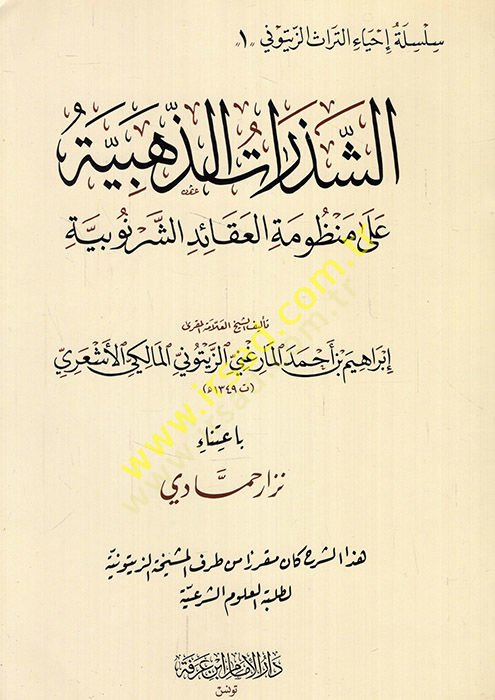 سِلْسِلَةُ إِحْيَاءِ التُّرَاثِ الزَّيْتُونِي «١»
الشَّذَرَاتُ الذَّهَبِيَّةُ
عَلَى مَنْظُومَةِ العَقَائِدِ الشَّرْنُوبِيَّةِ
تأليف الشيخ العلامة المقرئ
إِبْرَاهِيمَ بْنِ أَحْمَدَ المَارِغْنِيِّ الزَّيْتُونِيِّ المَالِكِيِّ الأَشْعَرِيِّ
(ت ١٣٤٩ه)
بِاعْتِنَاءِ
نزار حمَّادي
هذا الشرح كان مقررا من طرف المشيخة الزيتونية
لطلبة العلوم الشرعيّة
دار الإمام ابن عرفة
تونس
www.irsad.com.tr